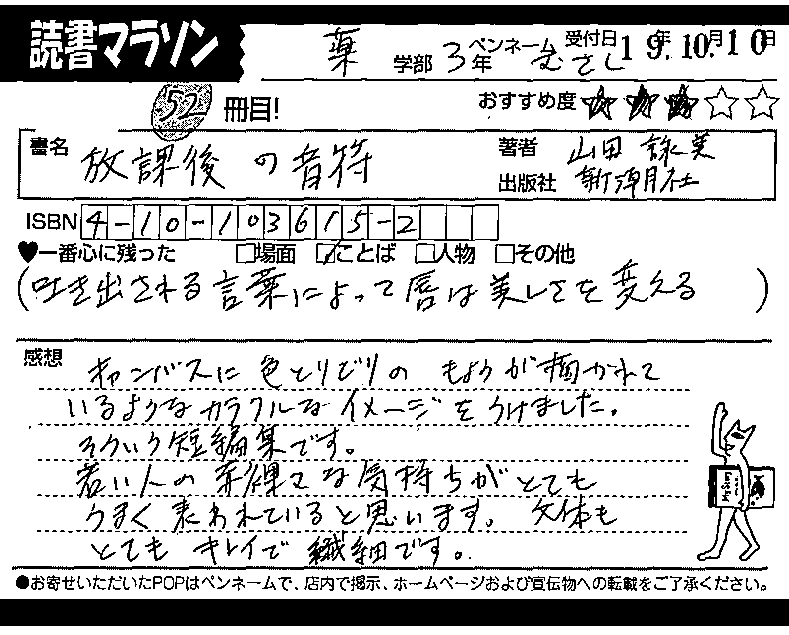 読書マラソン
薬 学部 3年 ペンネーム むさし 受付日 19年 10月 10日
52 冊目! おすすめ度 ★★★☆☆
書名 放課後の音符 著者 山田詠美
出版社 新潮社
ISBN 4-10-103615-2
♥一番心に残った □場面 ☑ことば □人物 □その他
(吐き出される言葉によって唇は美しさを変える)
感想 キャンバスに色とりどりのもようが描かれて
いるようなカラフルなイメージをうけました。
そういう短編集です。
若い人の赤裸々な気持ちがとても
うまく表われていると思います。文体も
とてもキレイで繊細です。
●お寄せいただいたPOPはペンネームで、店内で掲示、ホームページおよび宣伝物への転載をご了承ください。